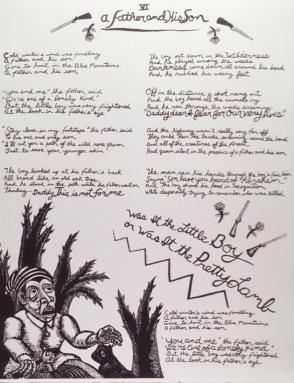 VI
a Father and His Son
Cold winter's wind was howling
A father and his son
Gone to hunt in the Blue Mountains
A father and his son
"you and me" the father said
"We're one of a lonely kind"
But the little boy was very frightened
At the look in his father's eye
"Stay close in my footsteps" the father said
to his one and only son
out a path of the wild rose thorn
Just to save your younger skin"
The boy looked up at his father's back
All broad like an old oak tree
And he stood in the path while his father went on
Thinking - Daddy this is not for me
The boy sat down in the Wilderness
And he played among the weeds
Darkness came down all around his head
And he rubbed his weary feet
Off in the distance a shot rang out
And the boy heard all the animals cry
And he ran through the weeds screaming
"Daddy dear I fear for Our very lives"
And the highway wasn't really very far off
and all the creatures of the forest
Had grown silent in the presence of a father and his son
The man ran his hands through the boy's fair hair
"Son, have you heard of the
the boy shook his head in recognition
While desperately trying to remember who was killed
Was It the Little Boy
or was It the Pretty Lamb
Cold winter's wind was howling
A father and his son
Gone to hunt in the Blue Mountains
A father and his son
"You and me" the father said
"We're One of a Lonely Kind"
But the little boy was very frightened
At the look in his father's eye